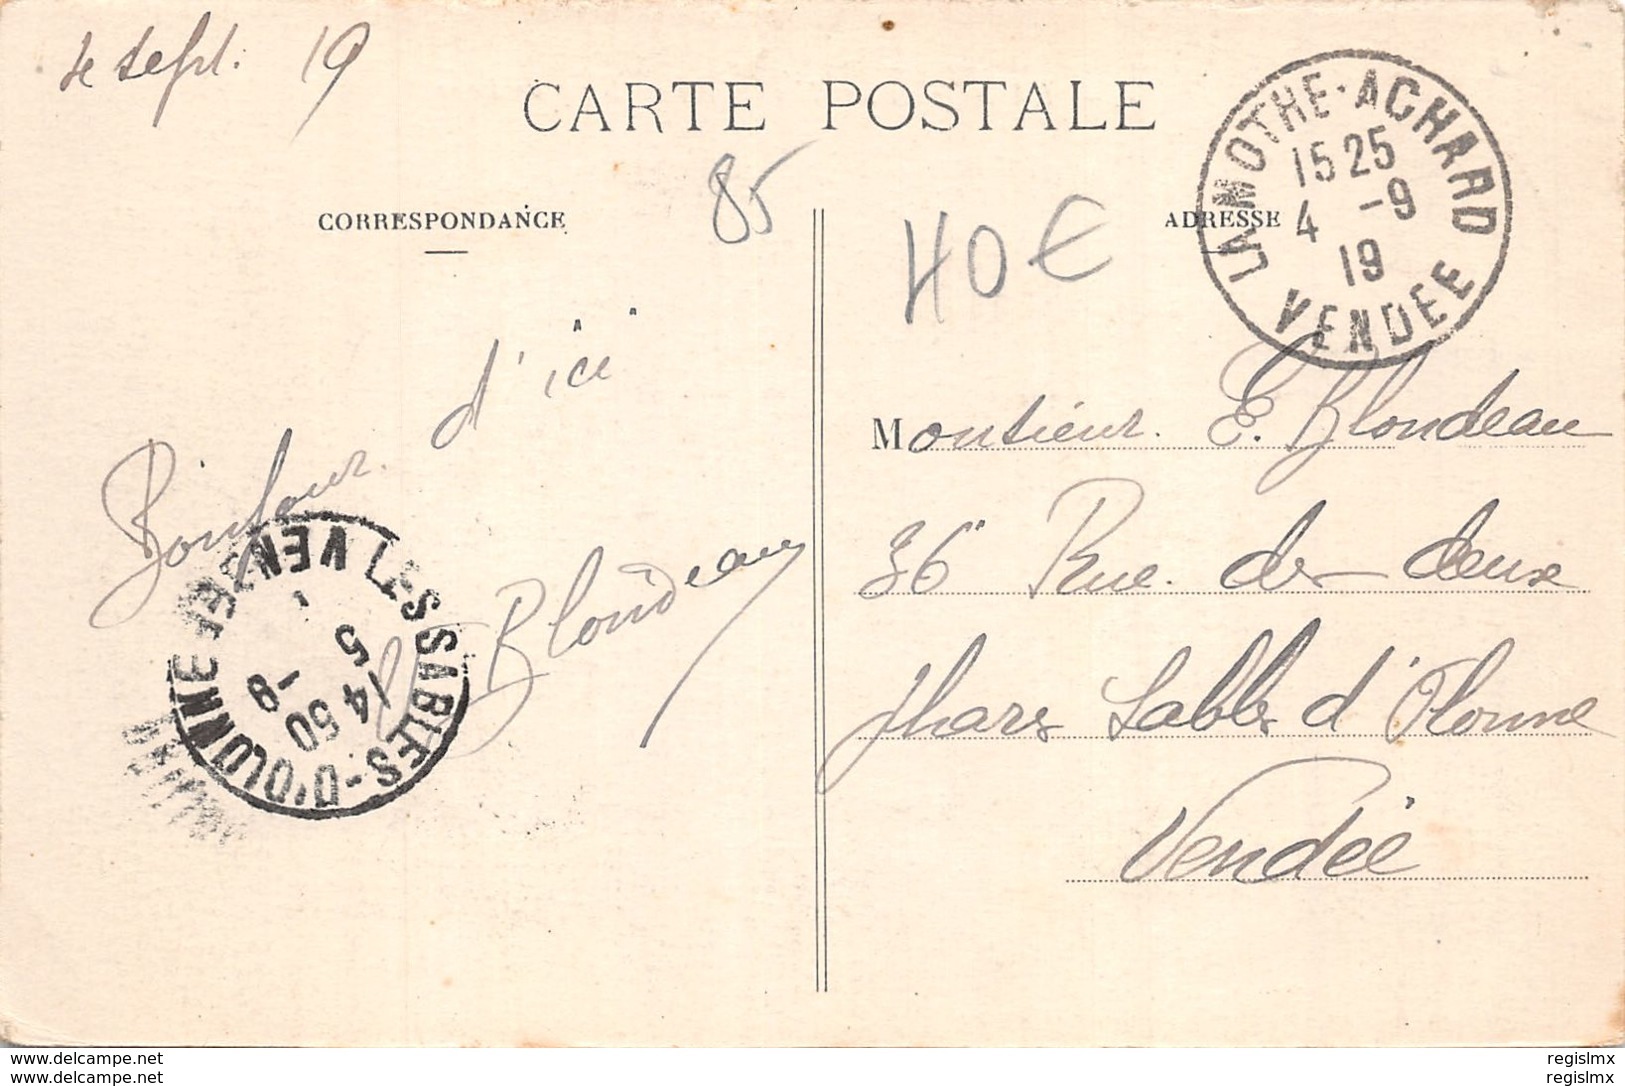 4 sept. 19
CARTE POSTALE
85
CORRESPONDANCE
ADRESSE
40€
LA MOTHE-ACHARD
15 25
4 -9
19
VENDEE
Bonjour d'ici
Blondeau
LES SABLES-D'OLONNE
VEN
14 50
5 -9
Monsieur E. Blondeau
36 Rue des deux
phares Sables d'Olonne
Vendée
www.delcampe.net
www.delcampe.net
regislmx
regislmx